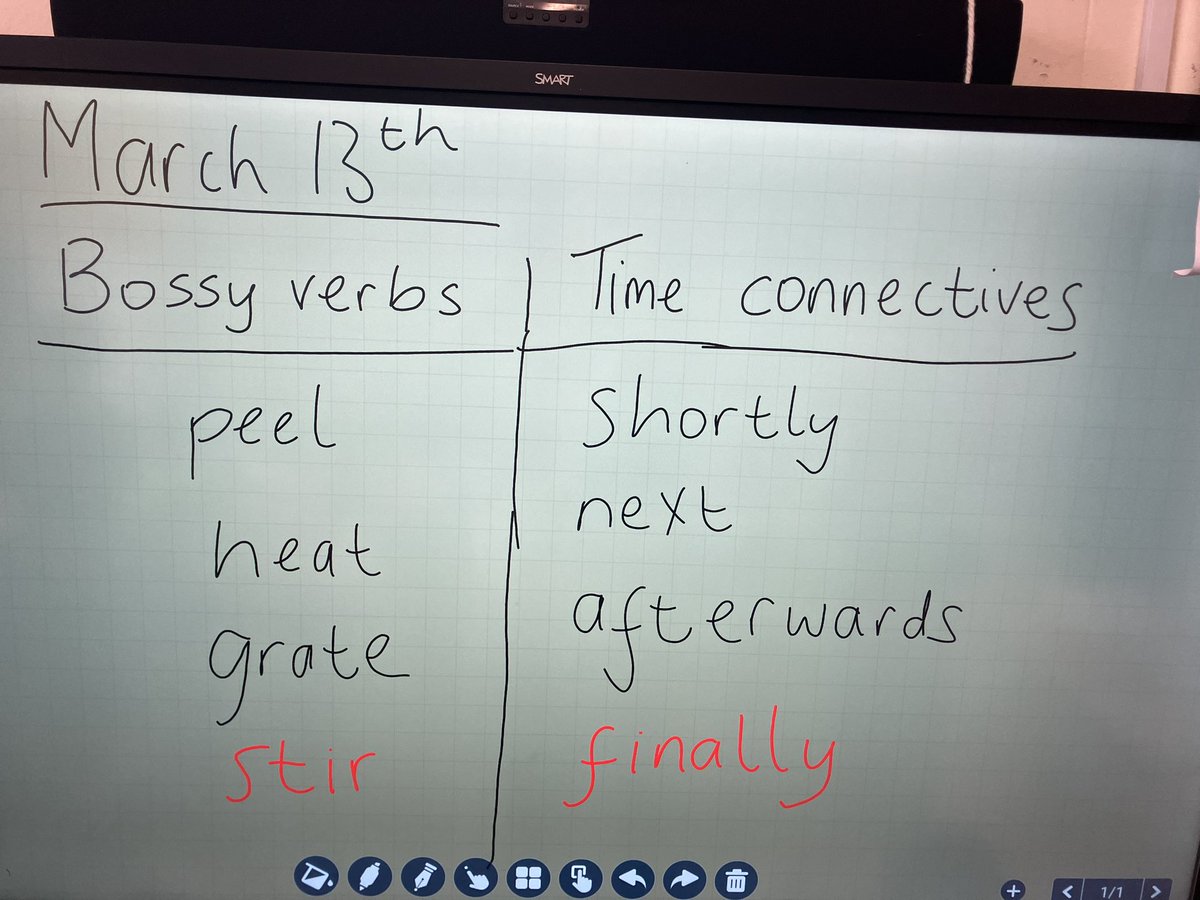 SMART
March 13th
Bossy verbs
Time connectives
peel
heat
grate
stir
shortly
next
afterwards
finally
1/1